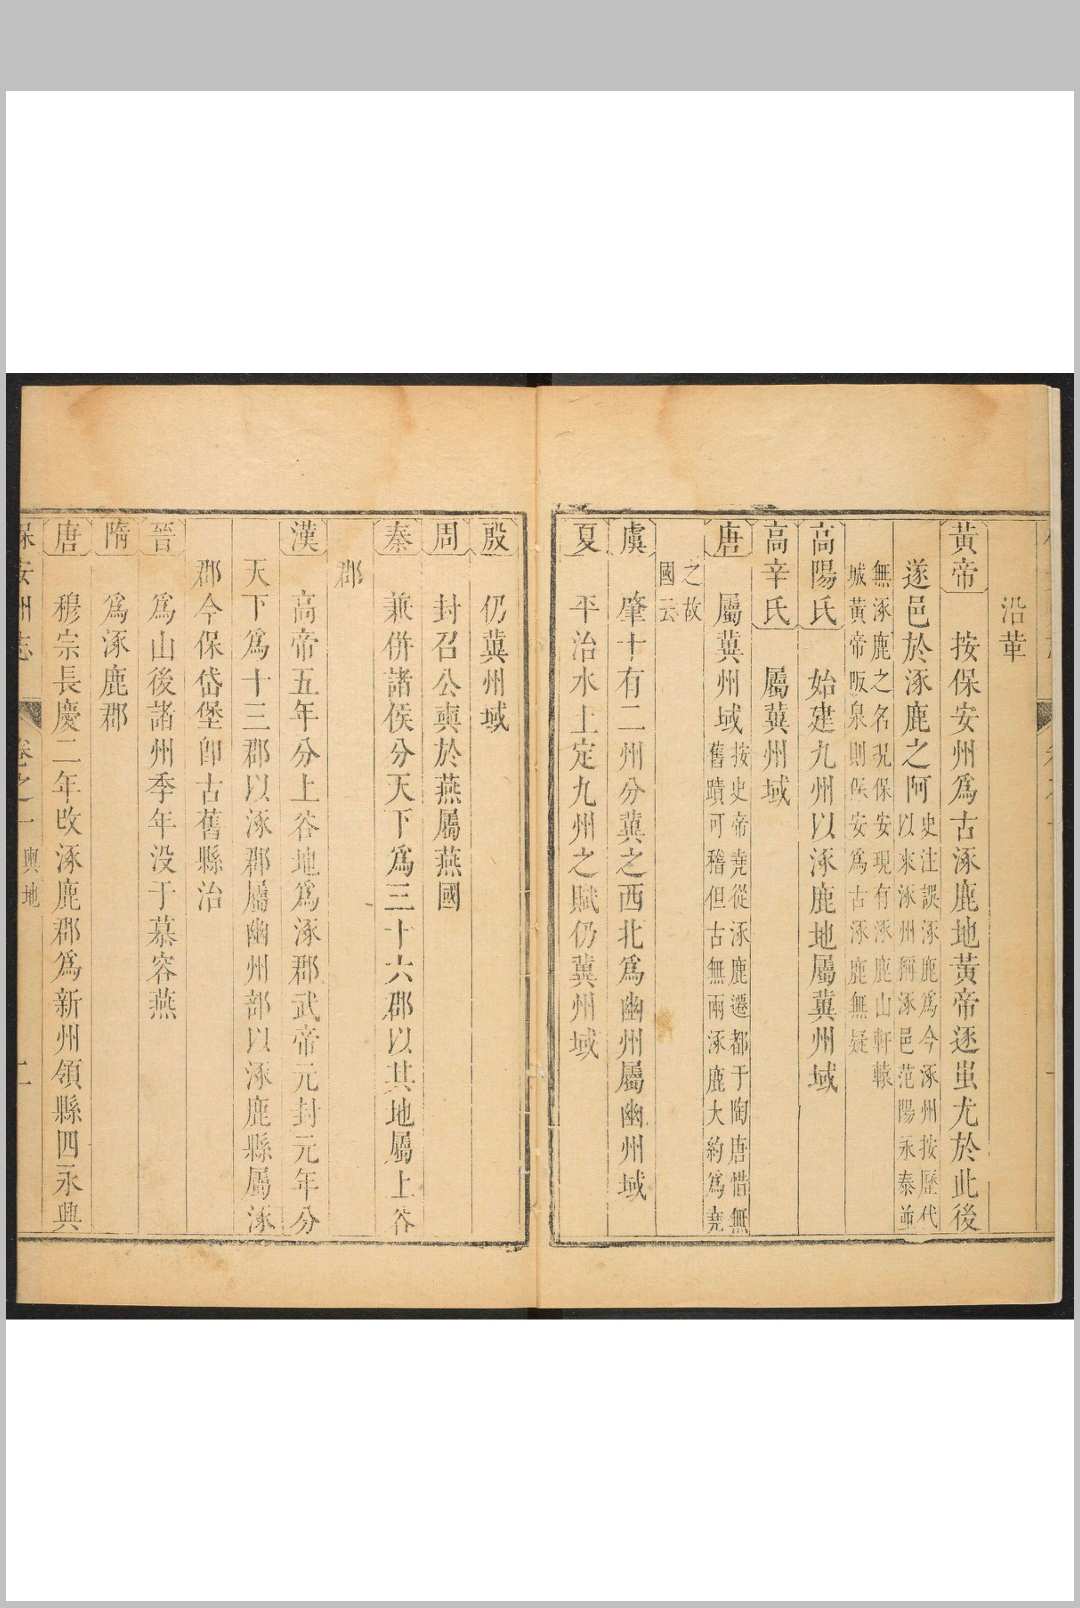 沿革
黃帝 按保安州爲古涿鹿地黃帝逐蚩尤於此後
遂邑於涿鹿之阿史注誤涿鹿爲今涿州按歷代
以來涿州稱涿邑范陽永泰並
無涿鹿之名况保安現有涿鹿山軒轅
城黃帝阪泉則保安爲古涿鹿無疑
高陽氏 始建九州以涿鹿地屬冀州域
高辛氏 屬冀州域
唐 屬冀州域按史帝堯從涿鹿遷都于陶唐惜無
舊蹟可稽但古無兩涿鹿大約爲堯
之故
國云
虞 肇十有二州分冀之西北爲幽州屬幽州域
夏 平治水土定九州之賦仍冀州域
殷 仍冀州域
周 封召公奭於燕屬燕國
秦 兼併諸侯分天下爲三十六郡以其地屬上谷
郡
漢 高帝五年分上谷地爲涿郡武帝元封元年分
天下爲十三郡以涿郡屬幽州部以涿鹿縣屬涿
郡今保岱堡卽古舊縣治
晉 爲山後諸州季年没于慕容燕
隋 爲涿鹿郡
唐 穆宗長慶二年改涿鹿郡爲新州領縣四永興
保安州志 卷之一 輿地 二